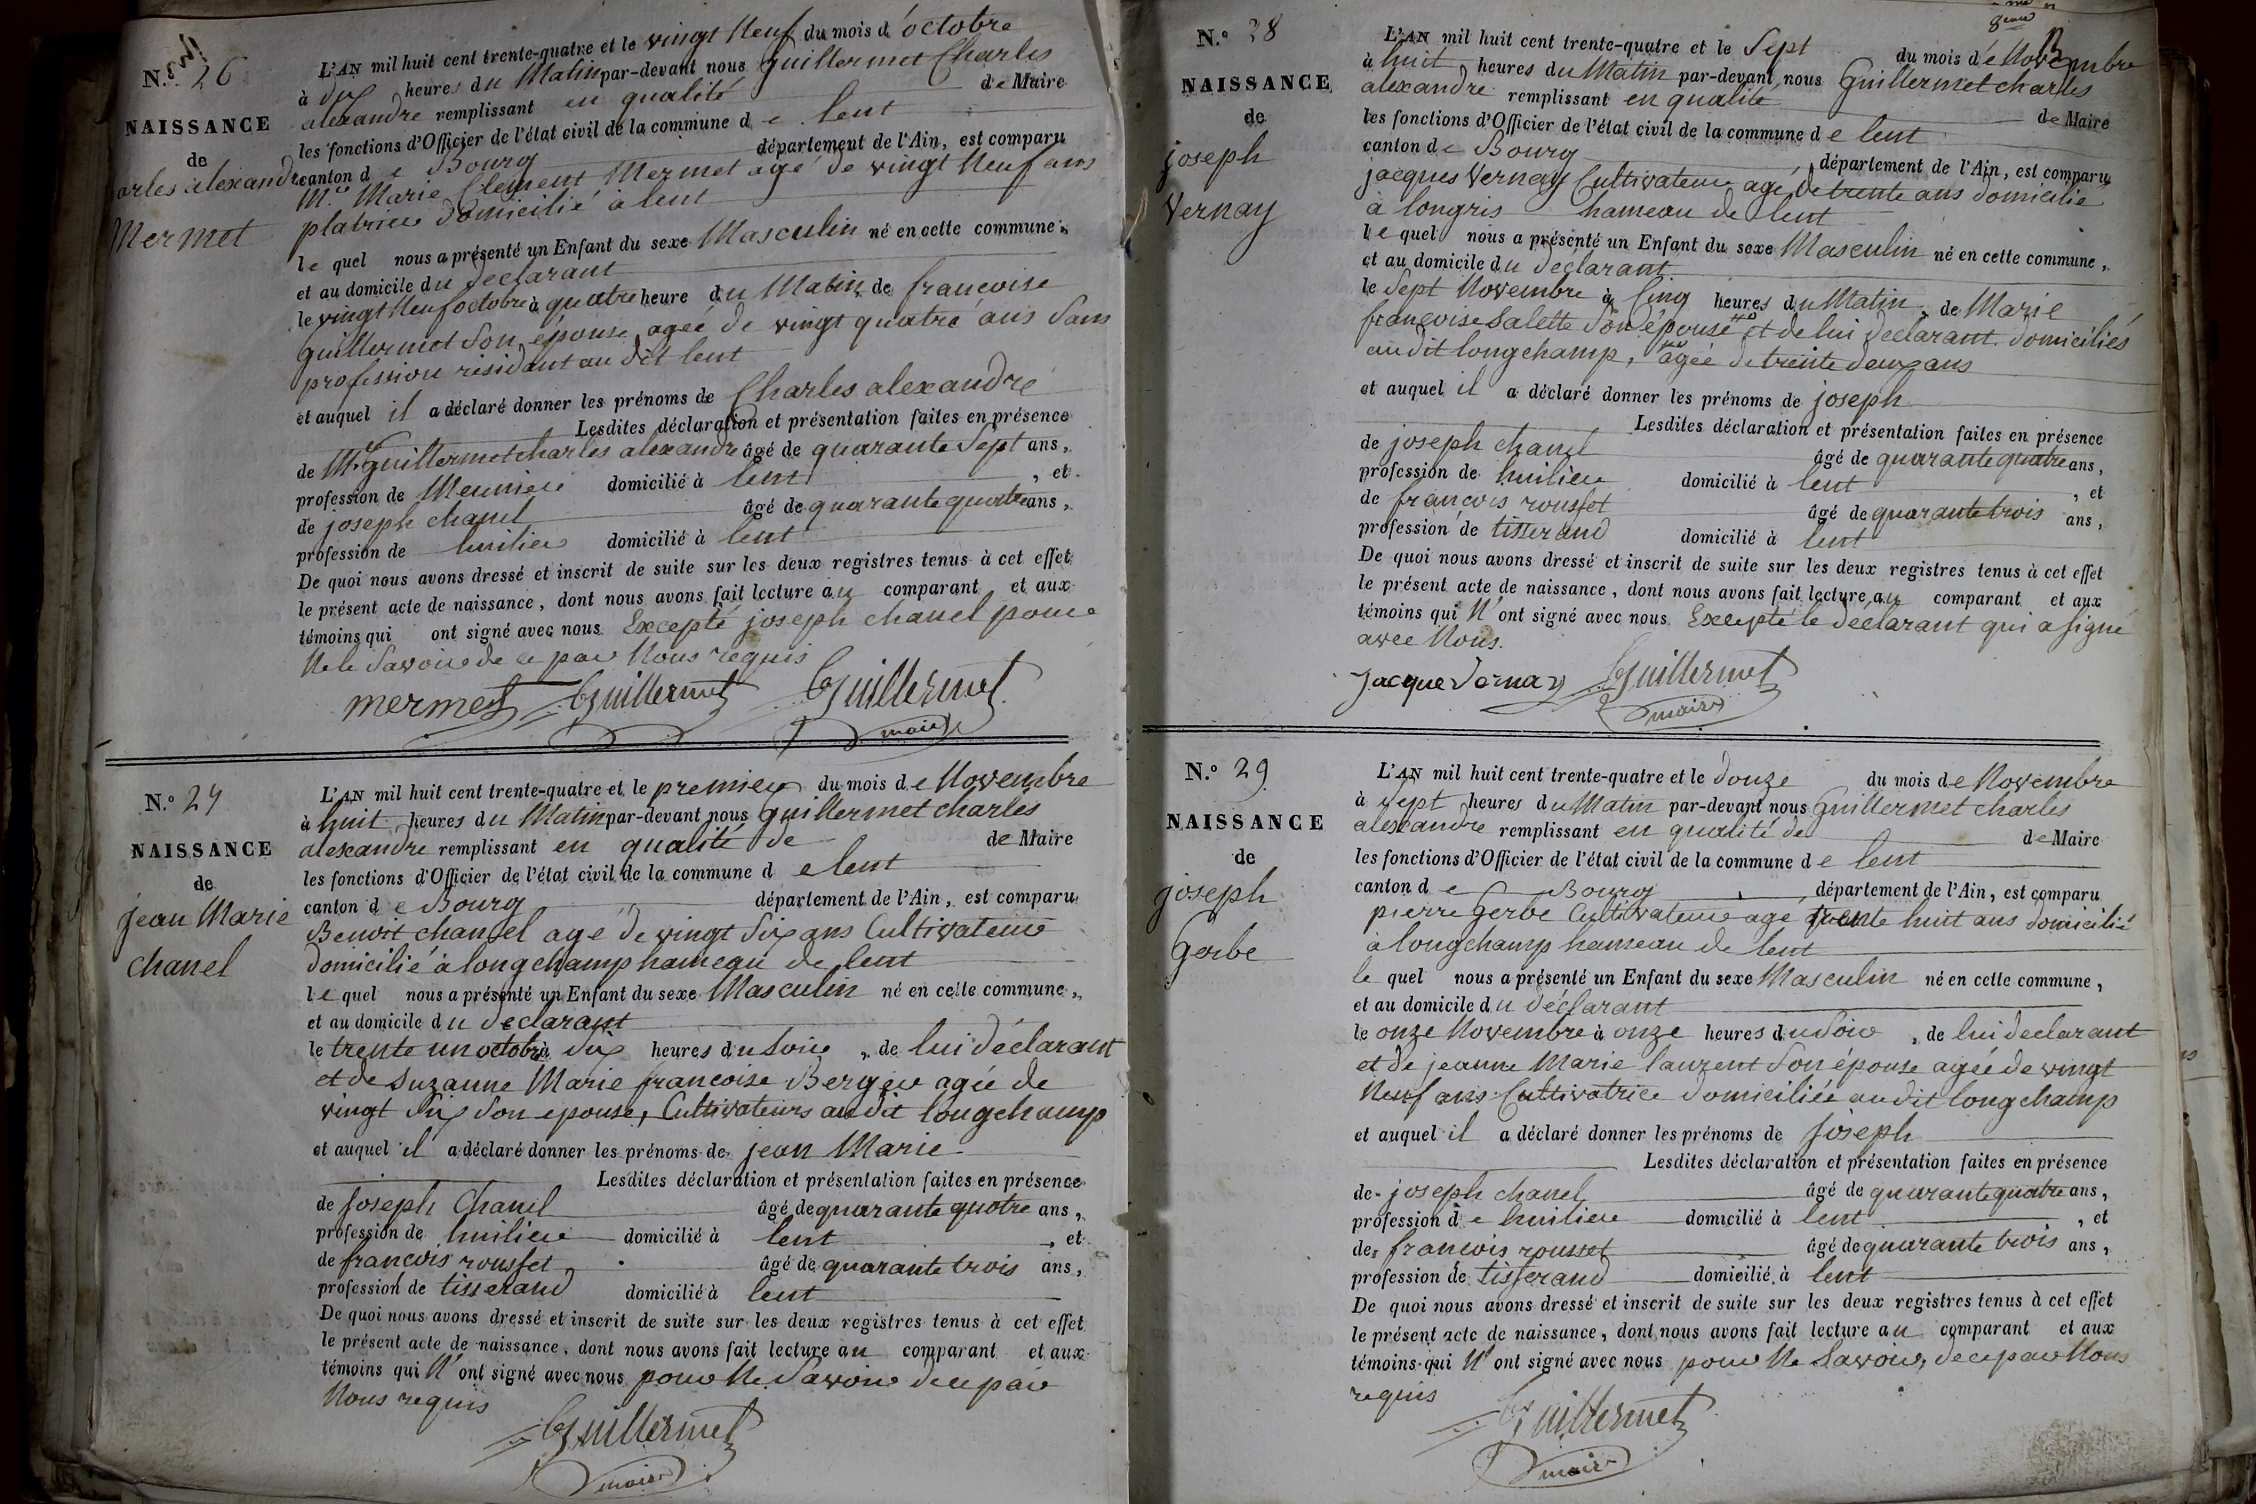 N.º 26
NAISSANCE
de
arles alexandre
Mermet
L'AN mil huit cent trente-quatre et le vingt Neuf du mois d'octobre
à dix heures du Matin par-devant nous guillermet Charles
alexandre remplissant en qualité de Maire
les fonctions d'Officier de l'état civil de la commune de lent
canton de Bourg département de l'Ain, est comparu
Mr. Marie Clement Mermet agé de vingt Neuf ans
platrier domicilié à lent
le quel nous a présenté un Enfant du sexe Masculin né en cette commune,
et au domicile du declarant
le vingt Neuf octobre à quatre heure du Matin de francoise
guillermet son épouse agée de vingt quatre ans sans
profession résidant au dit lent
et auquel il a déclaré donner les prénoms de Charles alexandre
Lesdites déclaration et présentation faites en présence
de Mr guillermet charles alexandre âgé de quarante Sept ans,
profession de Meunier domicilié à lent, et
de joseph chanel âgé de quarante quatre ans,
profession de huilier domicilié à lent
De quoi nous avons dressé et inscrit de suite sur les deux registres tenus à cet effet
le présent acte de naissance, dont nous avons fait lecture au comparant et aux
témoins qui ont signé avec nous Excepté joseph chanel pour
Ne le Savoir de ce par Nous requis
mermet Guillermet Guillermet
maire
N.º 27
NAISSANCE
de
jean Marie
chanel
L'AN mil huit cent trente-quatre et le premier du mois de Novembre
à huit heures du Matin par-devant nous guillermet charles
alexandre remplissant en qualité de de Maire
les fonctions d'Officier de l'état civil de la commune de lent
canton de Bourg département de l'Ain, est comparu
Benoit chanel agé de vingt Six ans Cultivateur
domicilié à longchamp hameau de lent
le quel nous a présenté un Enfant du sexe Masculin né en cette commune,
et au domicile du declarant
le trente un octobre à Six heures du Soir, de lui déclarant
et de Suzanne Marie francoise Berger agée de
vingt Six son epouse, Cultivateurs au dit longchamp
et auquel il a déclaré donner les prénoms de jean Marie
Lesdites déclaration et présentation faites en présence
de joseph Chanel âgé de quarante quatre ans,
profession de huilier domicilié à lent, et
de francois rousset âgé de quarante trois ans,
profession de tisserand domicilié à lent
De quoi nous avons dressé et inscrit de suite sur les deux registres tenus à cet effet
le présent acte de naissance, dont nous avons fait lecture au comparant et aux
témoins qui N'ont signé avec nous pour Ne Savoir de ce par
Nous requis
Guillermet
maire
N.º 28
NAISSANCE
de
joseph
Vernay
L'AN mil huit cent trente-quatre et le Sept du mois de Novembre
à huit heures du Matin par-devant nous Guillermet charles
alexandre remplissant en qualité de Maire
les fonctions d'Officier de l'état civil de la commune de lent
canton de Bourg département de l'Ain, est comparu
jacques Vernay Cultivateur agé de trente ans domicilié
à longris hameau de lent
le quel nous a présenté un Enfant du sexe Masculin né en cette commune,
et au domicile du declarant
le Sept Novembre à Cinq heures du Matin, de Marie
francoise Salette son épouse et de lui declarant domiciliés
au dit longchamp, agée de trente deux ans
et auquel il a déclaré donner les prénoms de joseph
Lesdites déclaration et présentation faites en présence
de joseph chanel âgé de quarante quatre ans,
profession de huilier domicilié à lent, et
de francois rousset âgé de quarante trois ans,
profession de tisserand domicilié à lent
De quoi nous avons dressé et inscrit de suite sur les deux registres tenus à cet effet
le présent acte de naissance, dont nous avons fait lecture au comparant et aux
témoins qui N'ont signé avec nous Excepté le déclarant qui a signé
avec Nous.
jacque vernay Guillermet
maire
N.º 29
NAISSANCE
de
joseph
Gerbe
L'AN mil huit cent trente-quatre et le douze du mois de Novembre
à Sept heures du Matin par-devant nous Guillermet charles
alexandre remplissant en qualité de de Maire
les fonctions d'Officier de l'état civil de la commune de lent
canton de Bourg département de l'Ain, est comparu
pierre Gerbe Cultivateur agé trente huit ans domicilié
à longchamp hameau de lent
le quel nous a présenté un Enfant du sexe Masculin né en cette commune,
et au domicile du déclarant
le onze Novembre à onze heures du Soir, de lui declarant
et de jeanne Marie laurent son épouse agée de vingt
Neuf ans Cultivatrice domiciliée au dit longchamp
et auquel il a déclaré donner les prénoms de joseph
Lesdites déclaration et présentation faites en présence
de joseph chanel âgé de quarante quatre ans,
profession de huilier domicilié à lent, et
de francois rousset âgé de quarante trois ans,
profession de tisserand domicilié à lent
De quoi nous avons dressé et inscrit de suite sur les deux registres tenus à cet effet
le présent acte de naissance, dont nous avons fait lecture au comparant et aux
témoins qui N'ont signé avec nous pour Ne Savoir, de ce par Nous
requis
Guillermet
maire